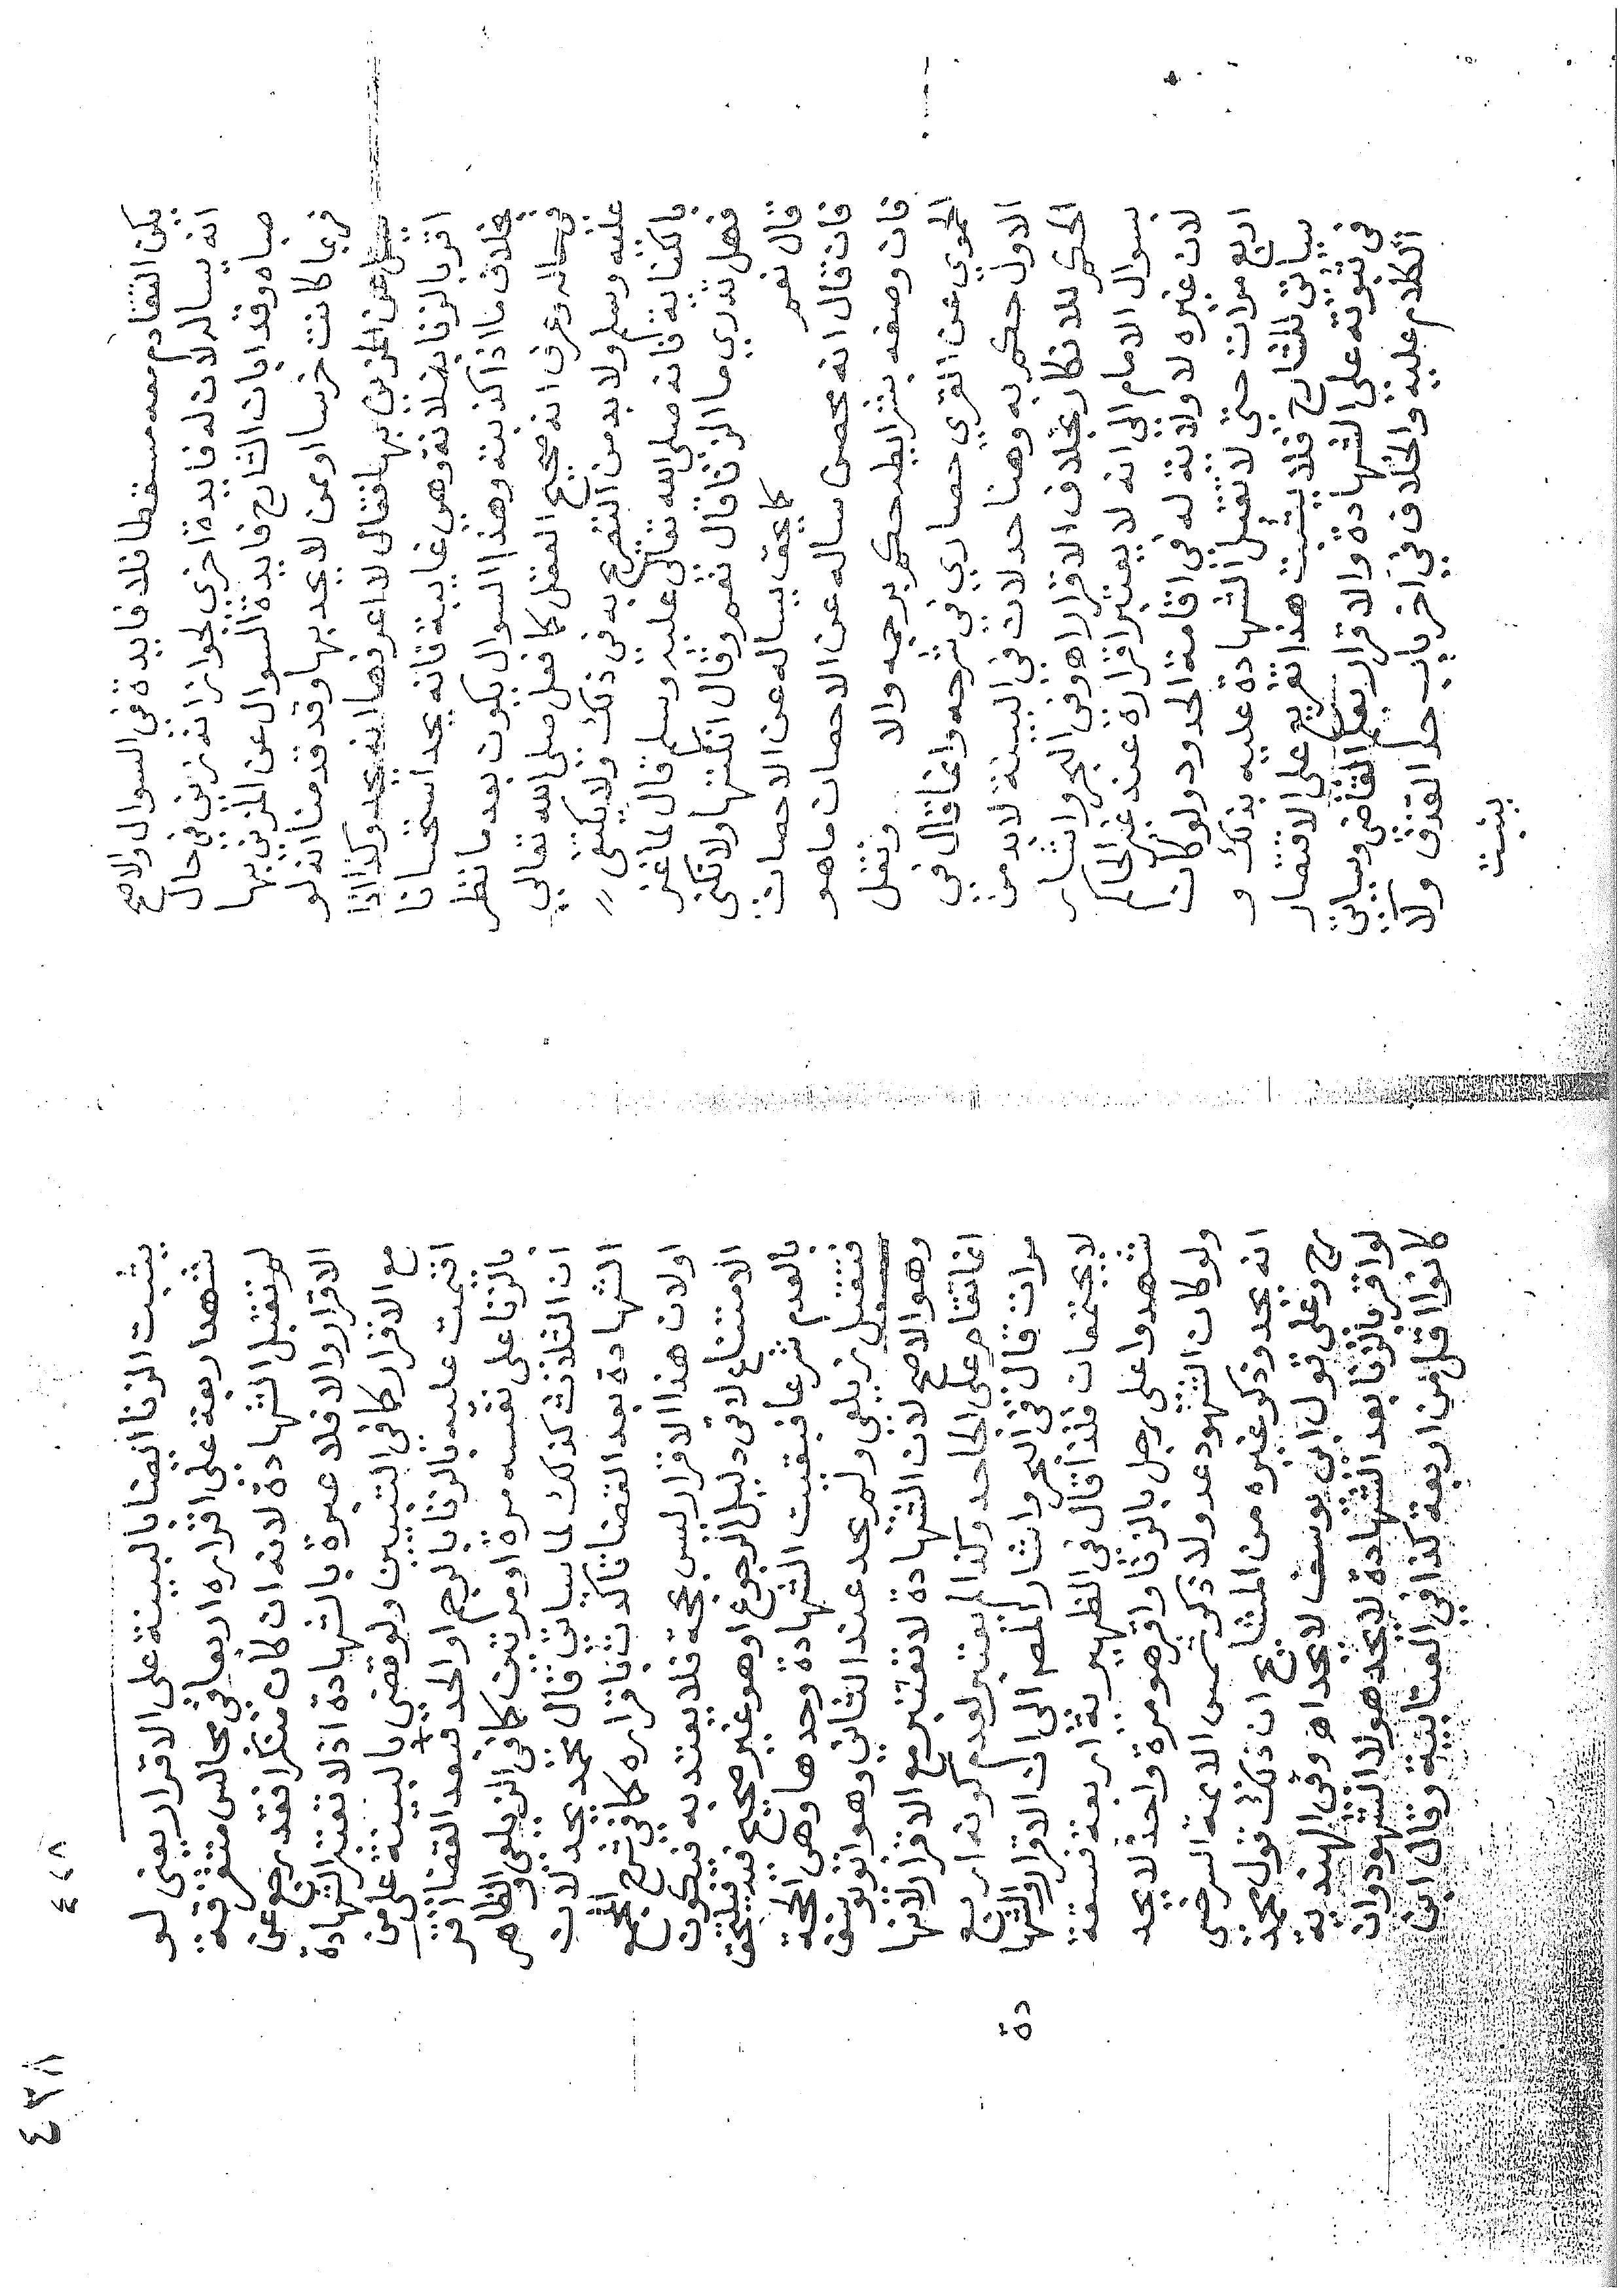 يكن التقادم معه مسقطا فلا فايدة في السوال والاصح
انه يساله لان له فايدة اخرى لجواز انه زنى في حال
صباه وقد ابان الشارح فايدة السوال عن المزني بها
فربما كانت خرسا او ممن لا يحد بها وقد قدمنا انه لو
سئل عن المزني بها فقال لا اعرفها انه يحد وكذا اذا
اقر بالزنا بفلانة وهي غايبة فانه يحد استحسانا
بخلاف ما اذا كذبته وهذا السوال يكون بعد ما نظر
في حاله وعرف انه صحيح العقل كما فعل صلى الله تعالي
عليه وسلم ولا بد من التصريح به في ذلك ولا يكتفي //
بالكناية فانه صلى الله تعالى عليه وسلم قال لماعز
فهل تدري ما الزنا قال نعم وقال انكتها ولا تكنى
قال نعم كما يحق يساله عن الاحصان
فان قال انه محصن ساله عن الاحصان ما هو
فان وصفه بشرايطه حكم برجمه والا ونقل
الحموي عن المقري حصاري في شرحه وانما قال في
الاول حكم به وهنا حد لان في البينة لابد من
الحكم للانكار بخلاف الاقرار اه وفي البحر واشار
بسوال الامام الى انه لا يعتبر اقراره عند غير الحاكم
لان غيره لا ولاية له في اقامة الحدود ولو كان
اربع مرات حتى لا تقبل الشهادة عليه بذلك و
سياتي للشارح فلا يثبت هذا تفريع على الاقتصار
في ثبوته على الشهادة والاقرار بعلم القاضي وسياتي
الكلام عليه والخلاف في اخر باب حد القذف ولا
يثبت
٤٤٨
٤٣٨
يثبت الزنا ايضا بالبينة على الاقرار يعني لو
شهد اربعة على اقراره اربعا في مجالس متفرقة
لم تقبل الشهادة لانه ان كان منكرا فقد رجع عن
الاقرار والا فلا عبرة بالشهادة اذ لا تعتبر الشهادة
مع الاقرار كما في التبيين ولو قضى بالبينة على من
اقيمت عليه بالزنا بالرجم او الحد فبعد القضا اقر
بالزنا على نفسه مرة او مرتين كما في الزيلعي والظاهر
ان الثلاث كذلك لما سياتي قال محمد يحد لان
الشهادة بعد القضا تاكدت باقراره كما في شرح المجمع
اولان هذا الاقرار ليس بحجة فلا يعتد به فيكون
الامتناع لاقي دليل الرجوع او هو غير صحيح فيلتحق
بالعدم شرعا فبقيت الشهادة وحدها وهي الحجة
فتقبل زيلعي ولم يحد عند الثاني وهو ابو يوسف
وهو الاصح لان الشهادة لا تعتبر مع الاقرار لانها
انما تقام على الجاحد وكذا لم يعتبر لعدم كونه اربع
مرات قال في البحر واشار المص الى ان الاقرار والشها
دة
لا يجتمعان فلذا قال في الظهيرية اربعة فسقة
شهدوا على رجل بالزنا واقر هو مرة واحدة لا يحد
ولو كان الشهود عدولا ذكر شمس الائمة السرخسي
انه يحد وذكر غيره من المشايخ ان ذلك قول محمد
رح وعلى قول ابي يوسف لا يحد اه وفي الهندية
لو اقر بالزنا بعد الشهادة لا يحد هولا الشهود وان
كانوا اقل من اربعة كذا في العتابية وقال ابن